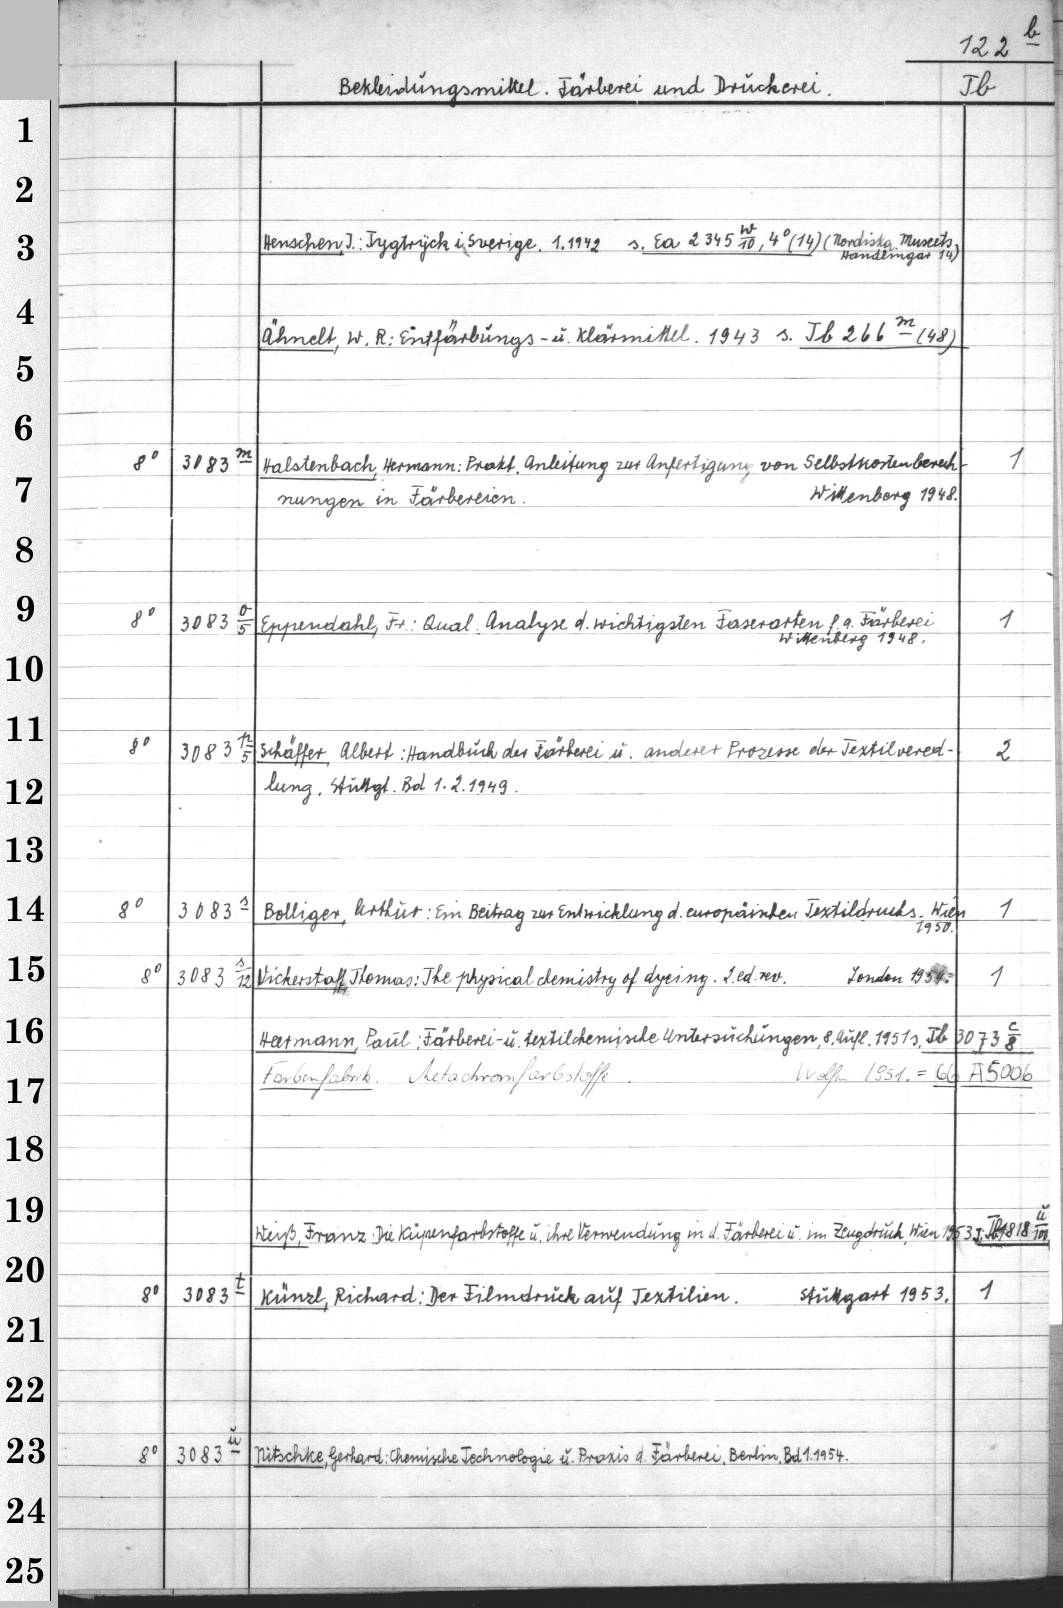 122 b
Bekleidungsmittel. Färberei und Druckerei. Tb
1
2
3 Henschen, I.: Tygtryck i Sverige. 1.1942 s. Ea 2345 w/10, 4° (14) (Nordiska Museets
Handlingar 14)
4
Ähnelt, W. R.: Entfärbungs- u. Klärmittel. 1943 s. Tb 266 m (48)
5
6
8° 3083 m Halstenbach, Hermann: Prakt. Anleitung zur Anfertigung von Selbstkostenberech- 1
7 nungen in Färbereien. Wittenberg 1948.
8
9 8° 3083 o/5 Eppendahl, Fr.: Qual. Analyse d. wichtigsten Faserarten f. d. Färberei 1
Wittenberg 1948.
10
11 8° 3083 p/5 Schäffer, Albert: Handbuch der Färberei u. anderer Prozesse der Textilvered- 2
12 lung. Stuttgt. Bd 1.2.1949.
13
14 8° 3083 s Bolliger, Arthur: Ein Beitrag zur Entwicklung d. europäischen Textildrucks. Wien 1
1950.
15 8° 3083 s/12 Vickerstaff, Thomas: The physical chemistry of dyeing. 2. ed. rev. London 1954. 1
16 Heermann, Paul: Färberei- u. textilchemische Untersuchungen, 8. Aufl. 1951 s. Tb 3073 c/8
17 Farbenfabrik. Metachromfarbstoffe. Wolfen 1951. = 66 A 5006
18
19 Weiß, Franz: Die Küpenfarbstoffe u. ihre Verwendung in d. Färberei u. im Zeugdruck, Wien 1953 s. Tb 1818 u/100
20
8° 3083 t Künzl, Richard: Der Filmdruck auf Textilien. Stuttgart 1953. 1
21
22
23 8° 3083 u Nitschke, Gerhard: Chemische Technologie u. Praxis d. Färberei, Berlin, Bd 1.1954.
24
25